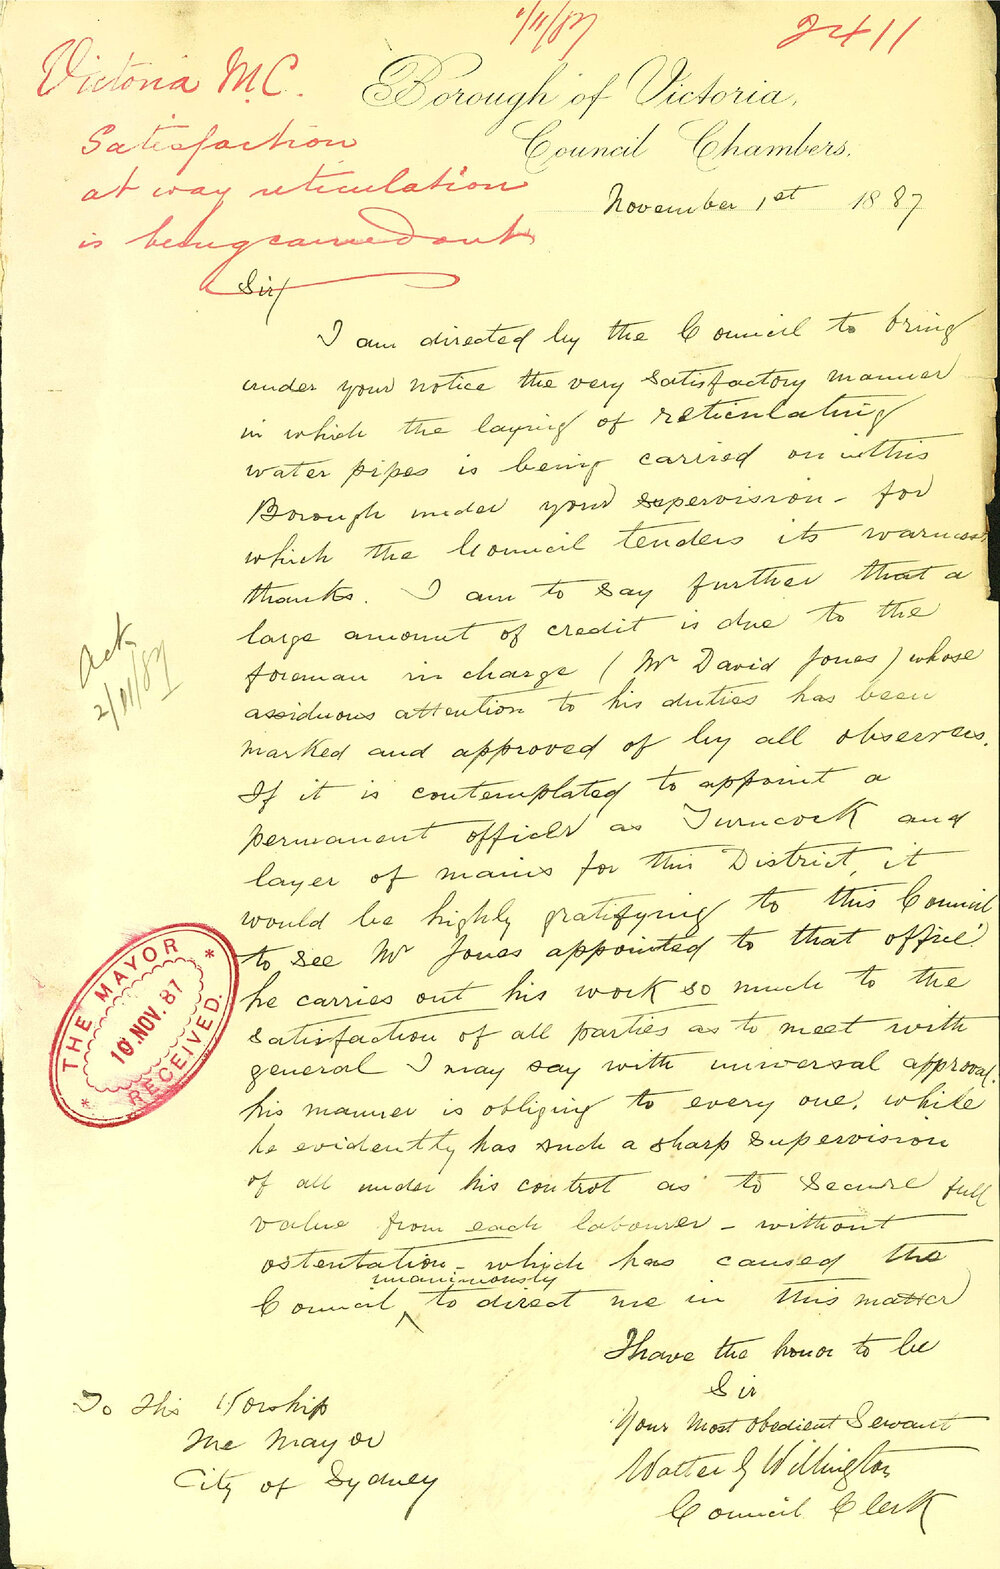 1/11/87
2411
Victoria M.C.
Satisfaction
at way reticulation
is being carried out
Borough of Victoria,
Council Chambers.
November 1st 1887
Sir/
I am directed by the Council to bring
under your notice the very satisfactory manner
in which the laying of reticulating
water pipes is being carried on in this
Borough under your supervision - for
which the Council tenders its warmest
thanks. I am to say further that a
large amount of credit is due to the
foreman in charge (Mr David Jones) whose
assiduous attention to his duties has been
marked and approved of by all observers.
If it is contemplated to appoint a
permanent officer as Turncock and
layer of mains for this District, it
would be highly gratifying to this Council
to see Mr Jones appointed to that office
he carries out his work so much to the
satisfaction of all parties as to meet with
general I may say with universal approval.
his manner is obliging to every one, while
he evidently has such a sharp supervision
of all under his control as to secure full
value from each labourer - without
ostentation - which has caused the
Council unanimously to direct me in this matter
Ack
2/11/87
THE MAYOR
10 NOV. 87
RECEIVED.
I have the honor to be
Sir
Your Most Obedient Servant
Walter J Willington
Council Clerk
To His Worship
The Mayor
City of Sydney